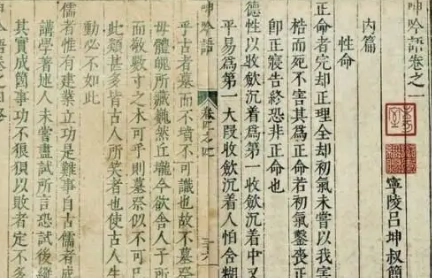 呻吟語卷之一
寧陵呂坤叔簡
内篇
性命
正命者完却正理全却初氣未嘗以我害
桎而死不害其爲正命若初氣鑿喪正
卽正寢告終恐非正命也
德性以收斂沉着爲第一收斂沉着中又
平易爲第一大段收斂沉着人怕含糊
乎古者墓而不墳不可識也故不墓祭
毋體魄所藏巍然丘壠今欲舍人子所
而敬數寸之木可乎則墓祭似不可
此類甚多皆古人所笑者也使古人生
動必不如此
儒者惟有建業立功是難事自古儒者成
講學著述人未嘗盡試所言恐試後
其實成箇事功不狼狽以敗者定不多
呻吟語